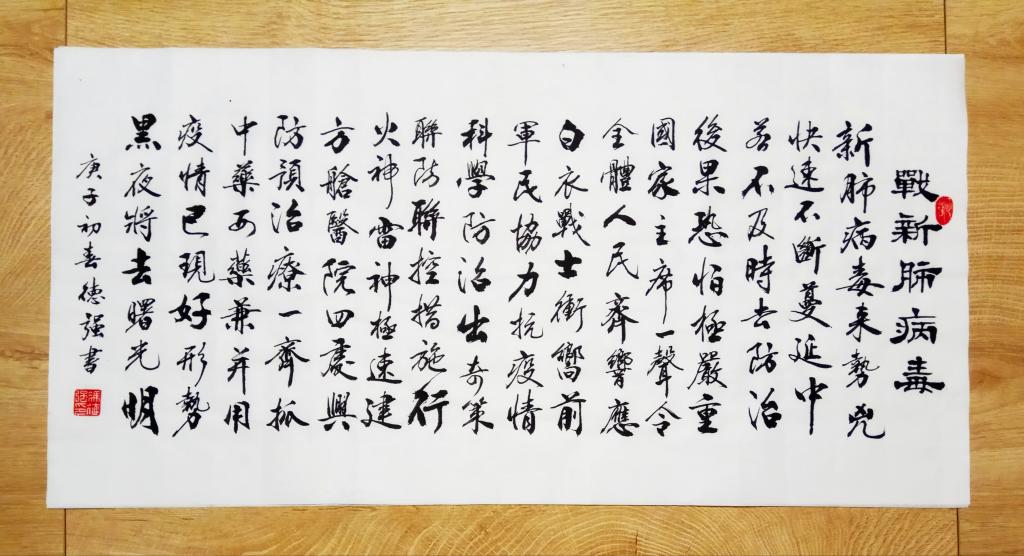 戰新肺病毒
新肺病毒来勢兇
快速不斷蔓延中
若不及時去防治
後果恐怕極嚴重
國家主席一聲令
全體人民齊響應
白衣戰士衝嚮前
軍民協力抗疫情
科學防治出奇策
聯防聯控措施行
火神雷神極速建
方艙醫院四處興
防預治療一齊抓
中藥西藥兼并用
疫情已現好形勢
黑夜將去曙光明
庚子初春德强書